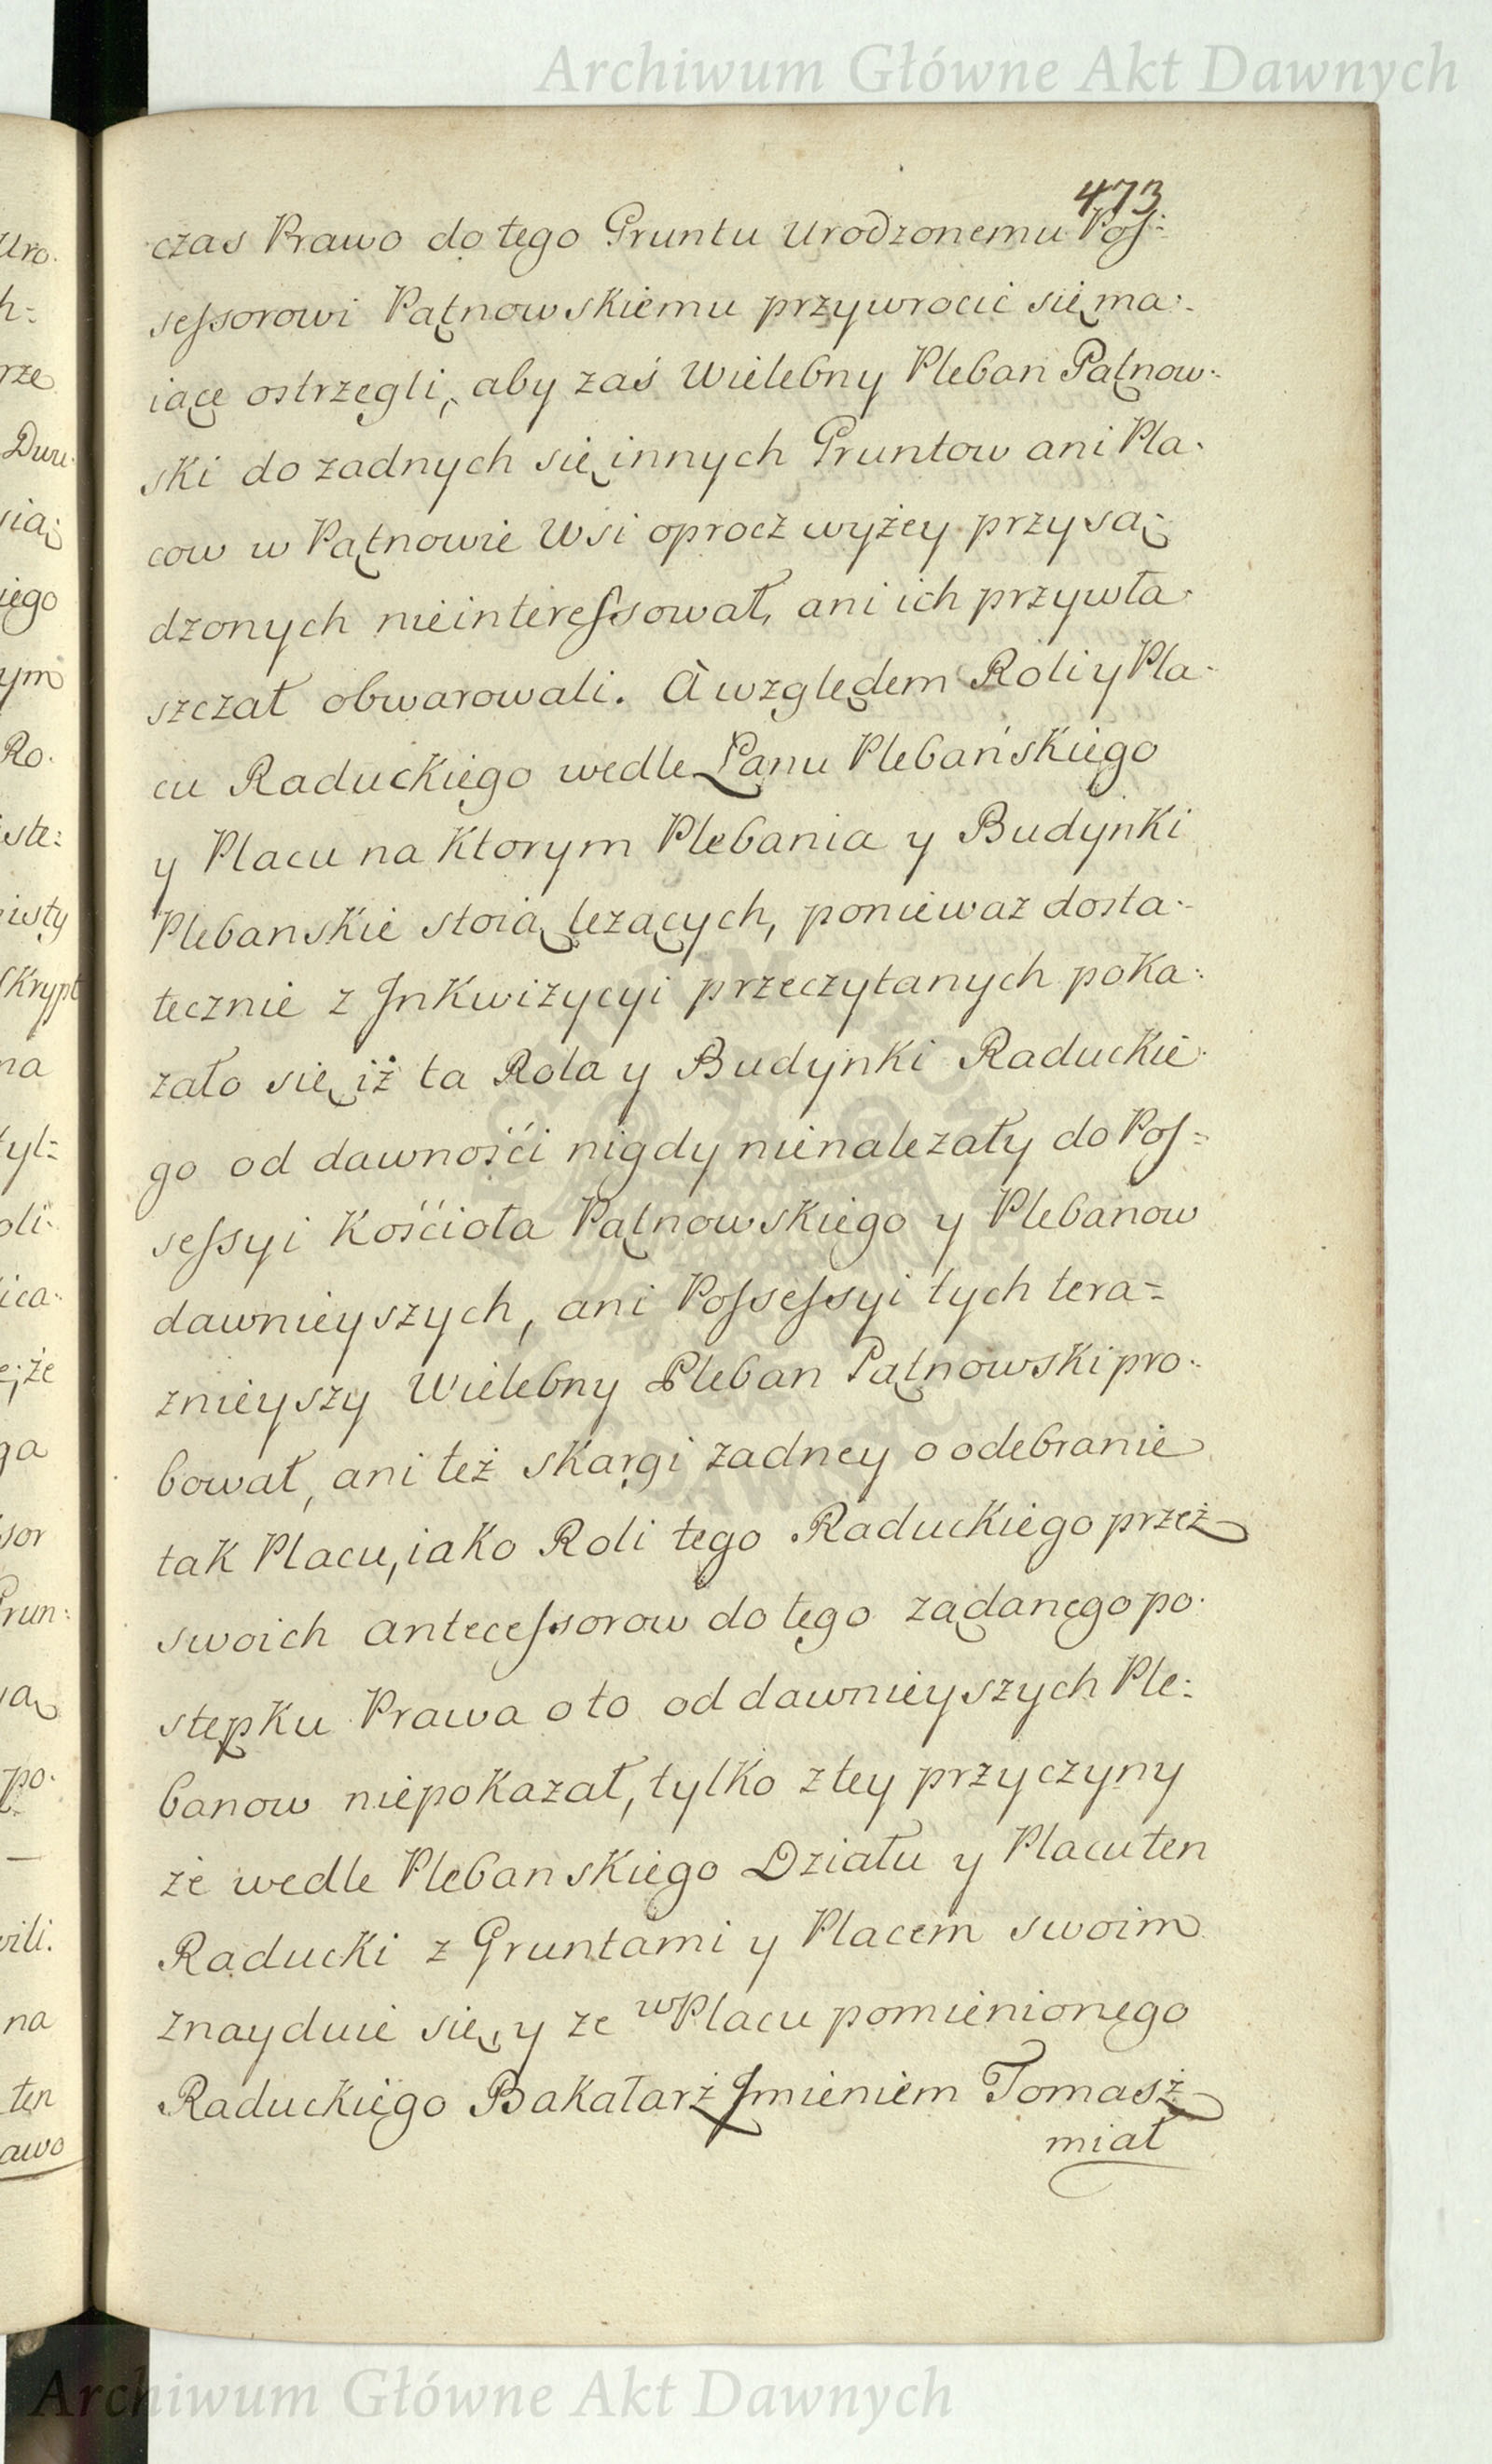 Archiwum Główne Akt Dawnych
473
czas Prawo do tego Gruntu Urodzonemu Pos:
sessorowi Pątnowskiemu przywrocić się ma:
iące ostrzegli, aby zaś Wielebny Pleban Pątnow:
ski do zadnych się innych Gruntow ani Pla:
cow w Pątnowie Wsi oprocz wyżey przysą:
dzonych nieinteressował, ani ich przywła:
szczał obwarowali. A względem Roli y Pla:
cu Raduckiego wedle Łanu Plebańskiego
y Placu na Ktorym Plebania y Budynki
Plebanskie stoią lezących, poniewaz dosta:
tecznie z Jnkwizycyi przeczytanych poka:
zało się iż ta Rola y Budynki Raduckie:
go od dawnośći nigdy nienalezały do Pos=
sessyi Kośćioła Pątnowskiego y Plebanow
dawnieyszych, ani Possessyi tych tera=
znieyszy Wielebny Pleban Pątnowski pro:
bował, ani też skargi zadney o odebranie
tak Placu, iako Roli tego Raduckiego przez
swoich antecessorow do tego ządanego po:
stępku Prawa o to od dawnieyszych Ple:
banow niepokazał, tylko z tey przyczyny
że wedle Plebanskiego Działu y Placu ten
Raducki z Gruntami y Placem swoim
znayduie się, y ze w Placu pomienionego
Raduckiego Bakałarz Jmieniem Tomasz
miał
Uro.
h=
rze
Dwu
sią:
iego
ym
Ro.
ste:
isty
skrypt
na
tyl=
oli:
ica:
e; że
ga
sor
Grun:
ą
po:
vili.
na
ten
awo
Archiwum Główne Akt Dawnych